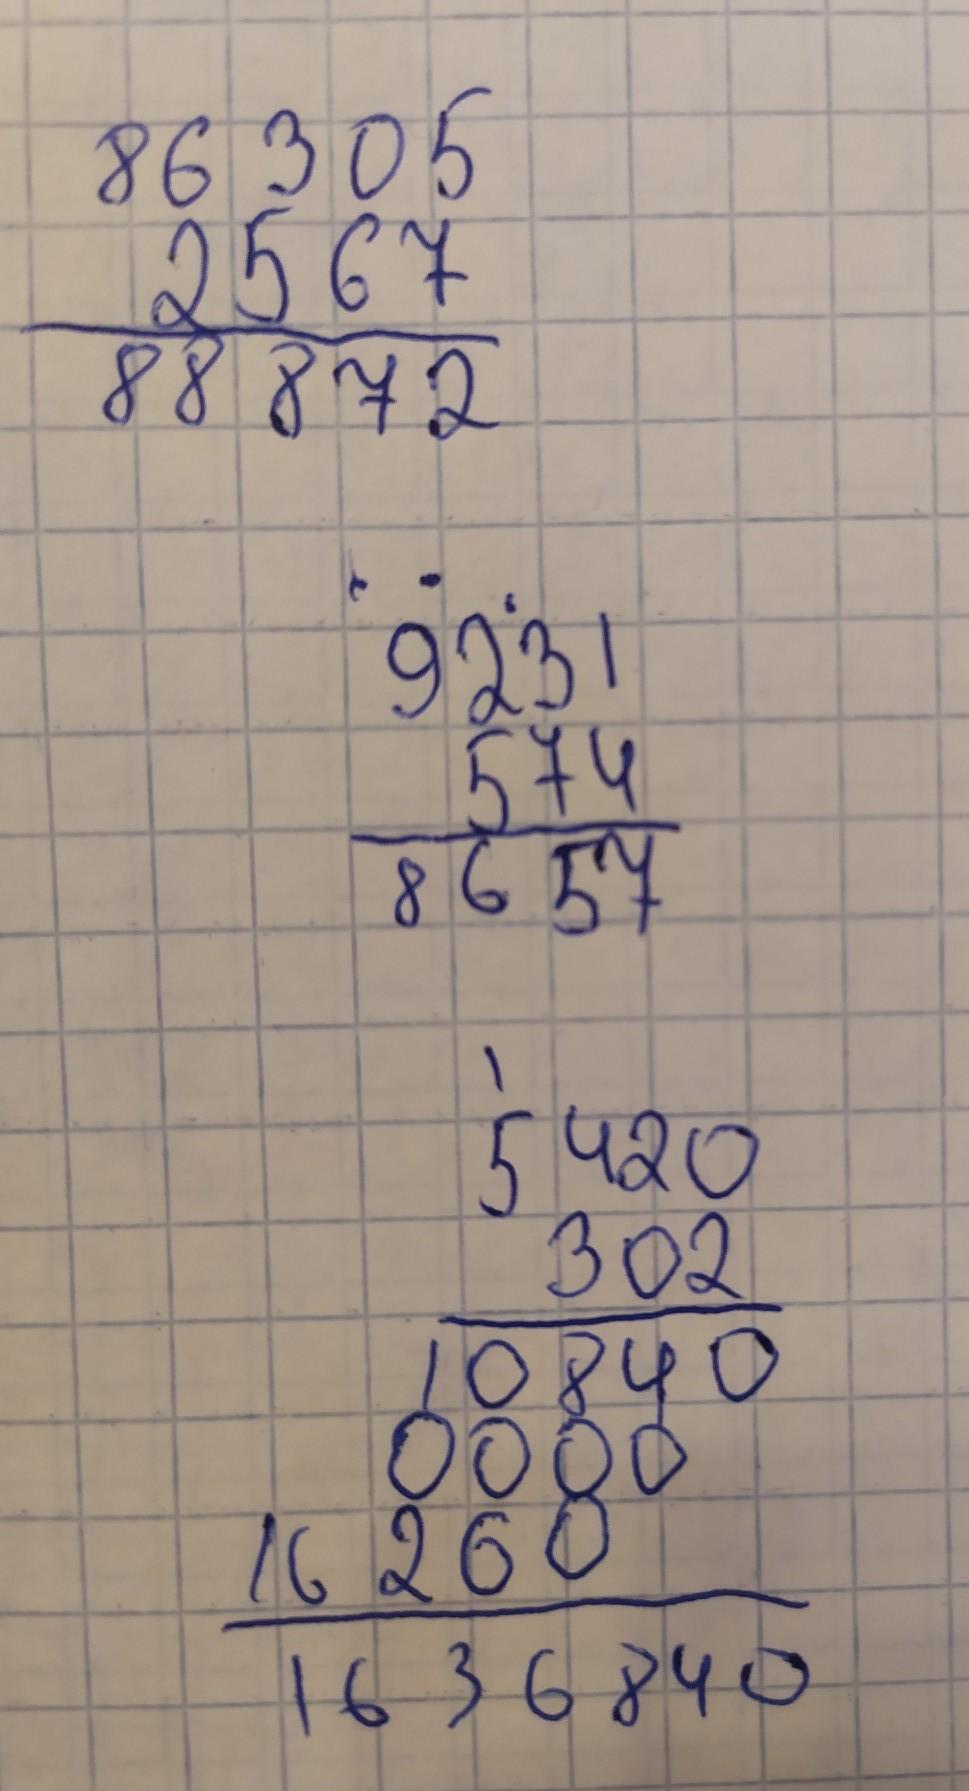 86305
2567
88872
9231
574
8657
1
5420
302
10840
0000
16260
1636840